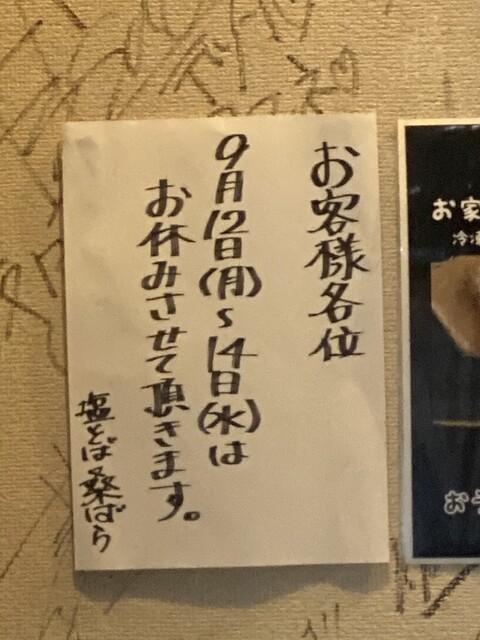 お客様各位
9月12日(月)~14日(水)は
お休みさせて頂きます。
塩そば 桑ばら
お家
冷凍